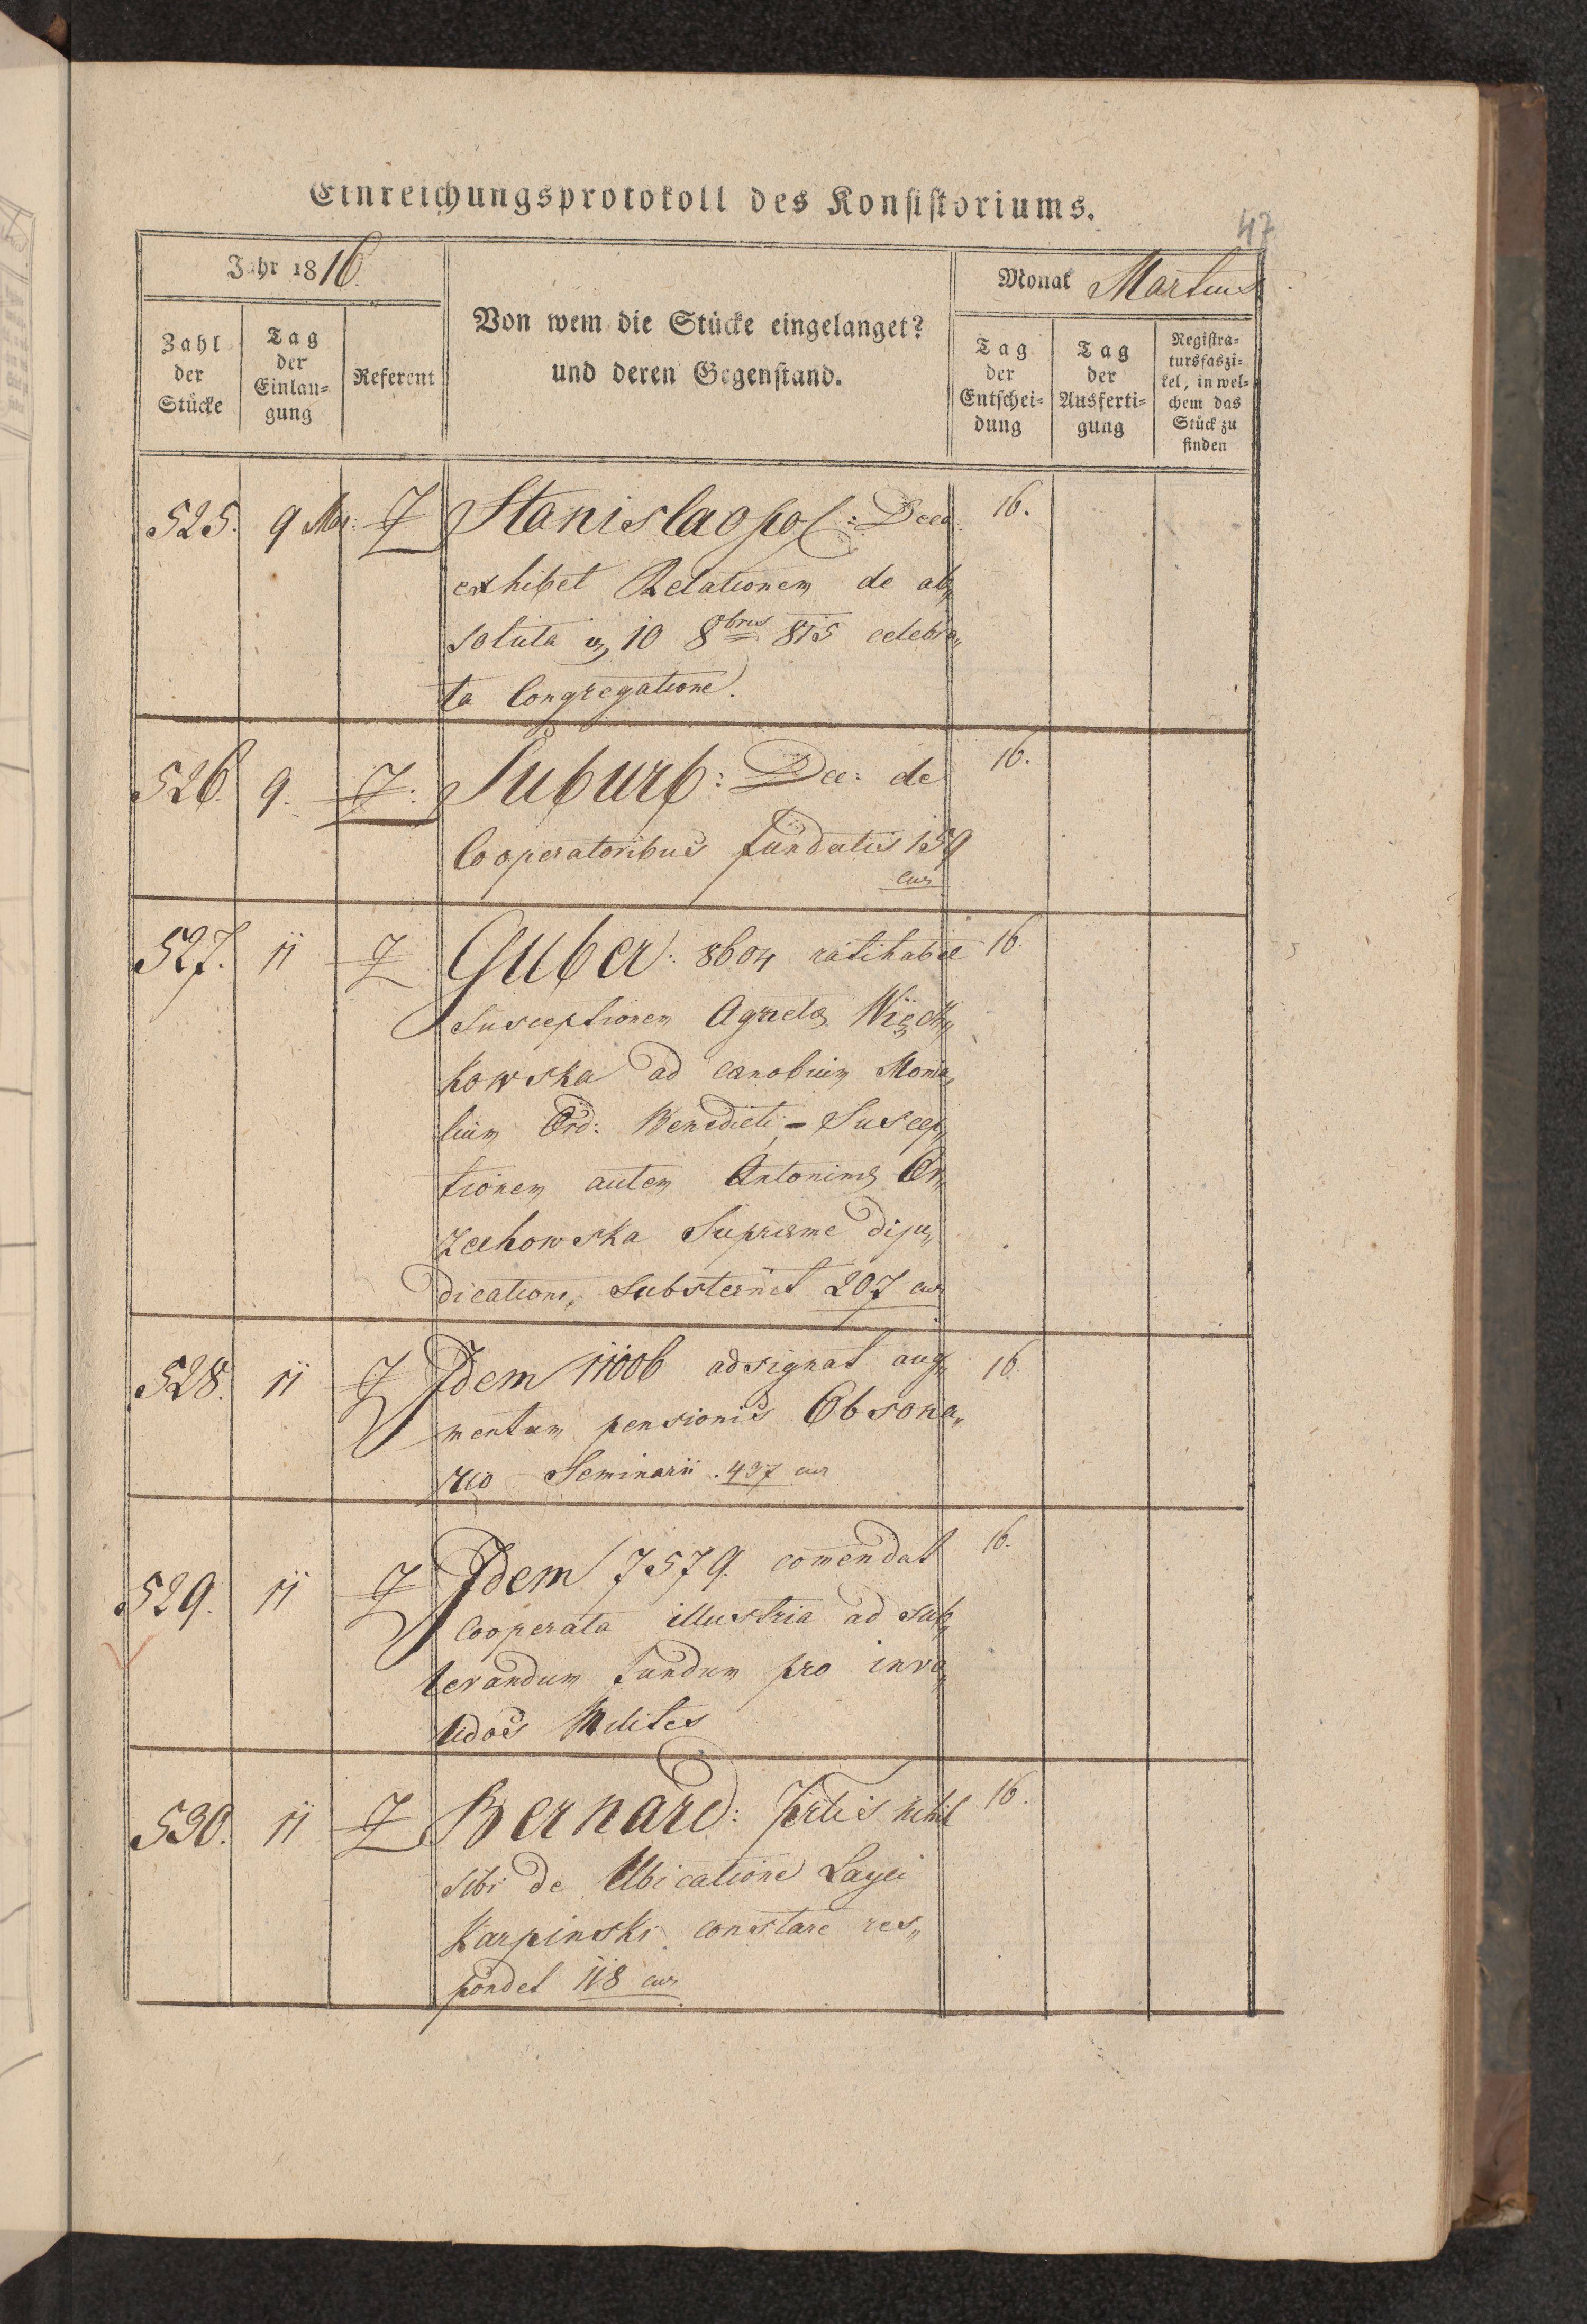 Einreichungsprotokoll des Konsistoriums.
47
Jahr 1816.
Monat Martius
Zahl der Stücke
Tag der Einlangung
Referent
Von wem die Stücke eingelanget?
und deren Gegenstand.
Tag der Entscheidung
Tag der Ausfertigung
Registratursfaszikel, in welchem das Stück zu finden
525. 9 Mar: Stanislaopol: Deca. 16.
exhibet Relationem de ab„
soluta 10 8brus 815 celebra„
ta Congregatione.
526. 9. Suburb: Dec: de 16.
Cooperatoribus fundatis 159
cur
527. 11 Guber: 8604 ratihabet 16.
Susceptionem Agnetæ
kowska ad cænobium Monia„
lium Ord: Benedicti - Suscep„
tionem autem Antoninæ Or„
zechowska Supremæ diju„
dicationi substernit 207 cur
528. 11 Idem 11006 adsignat aug„ 16.
mentum pensionis Obsona„
rio Seminarii . 437 cur
529. 11 Idem 7579. comendat 16.
Cooperata illustria ad sub„
levandum fundum pro inva„
lidos Milites
530. 11 Bernard: nihil 16.
sibi de Ubicatione Layci
Karpinski constare res„
pondet 118 cur